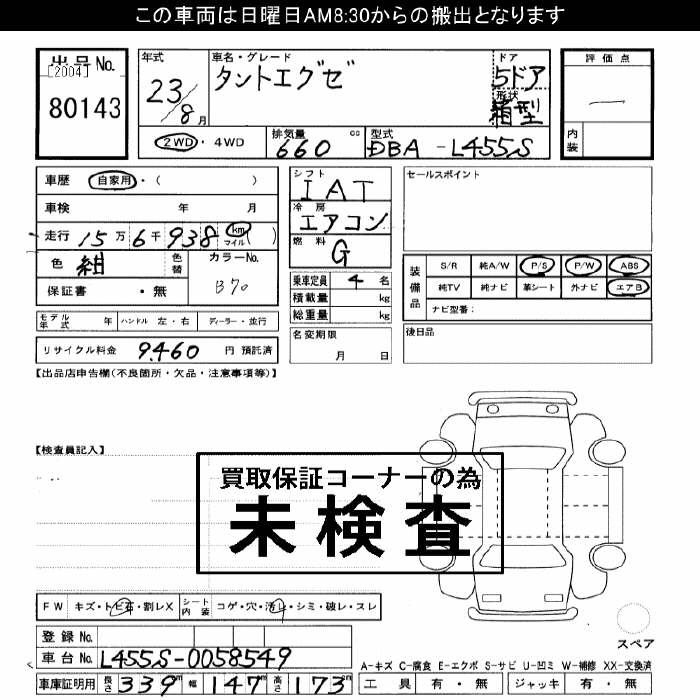 この車両は日曜日AM8:30からの搬出となります
出品No.
[2004]
80143
年式
23/8月
車名・グレード
タントエグゼ
ドア
5ドア
形状
箱型
評価点
—
内装
2WD・4WD
排気量 660 cc
型式 DBA-L455S
車歴 自家用・( )
車検 年 月
走行 15万6千938 km マイル( )
色 紺
色替
カラーNo.
B70
保証書 ・無
シフト
IAT
冷房
エアコン
燃料
G
乗車定員 4 名
積載量 kg
総重量 kg
セールスポイント
装備品
S/R 純A/W P/S P/W ABS
純TV 純ナビ 革シート 外ナビ エアB
ナビ型番:
モデル年式 年 ハンドル 左・右 ディーラー・並行
リサイクル料金 9.460 円 預託済
名変期限
月 日
後日品
【出品店申告欄(不良箇所・欠品・注意事項等)】
【検査員記入】
買取保証コーナーの為
未検査
FW キズ・トビ石・割レX
シート内装 コゲ・穴・汚レ・シミ・破レ・スレ
登録No.
車台No. L455S-0058549
スペア
A-キズ C-腐食 E-エクボ S-サビ U-凹ミ W-補修 XX-交換済
車庫証明用 長さ 339m 幅 147m 高さ 173cm
工具 有・無 ジャッキ 有・無